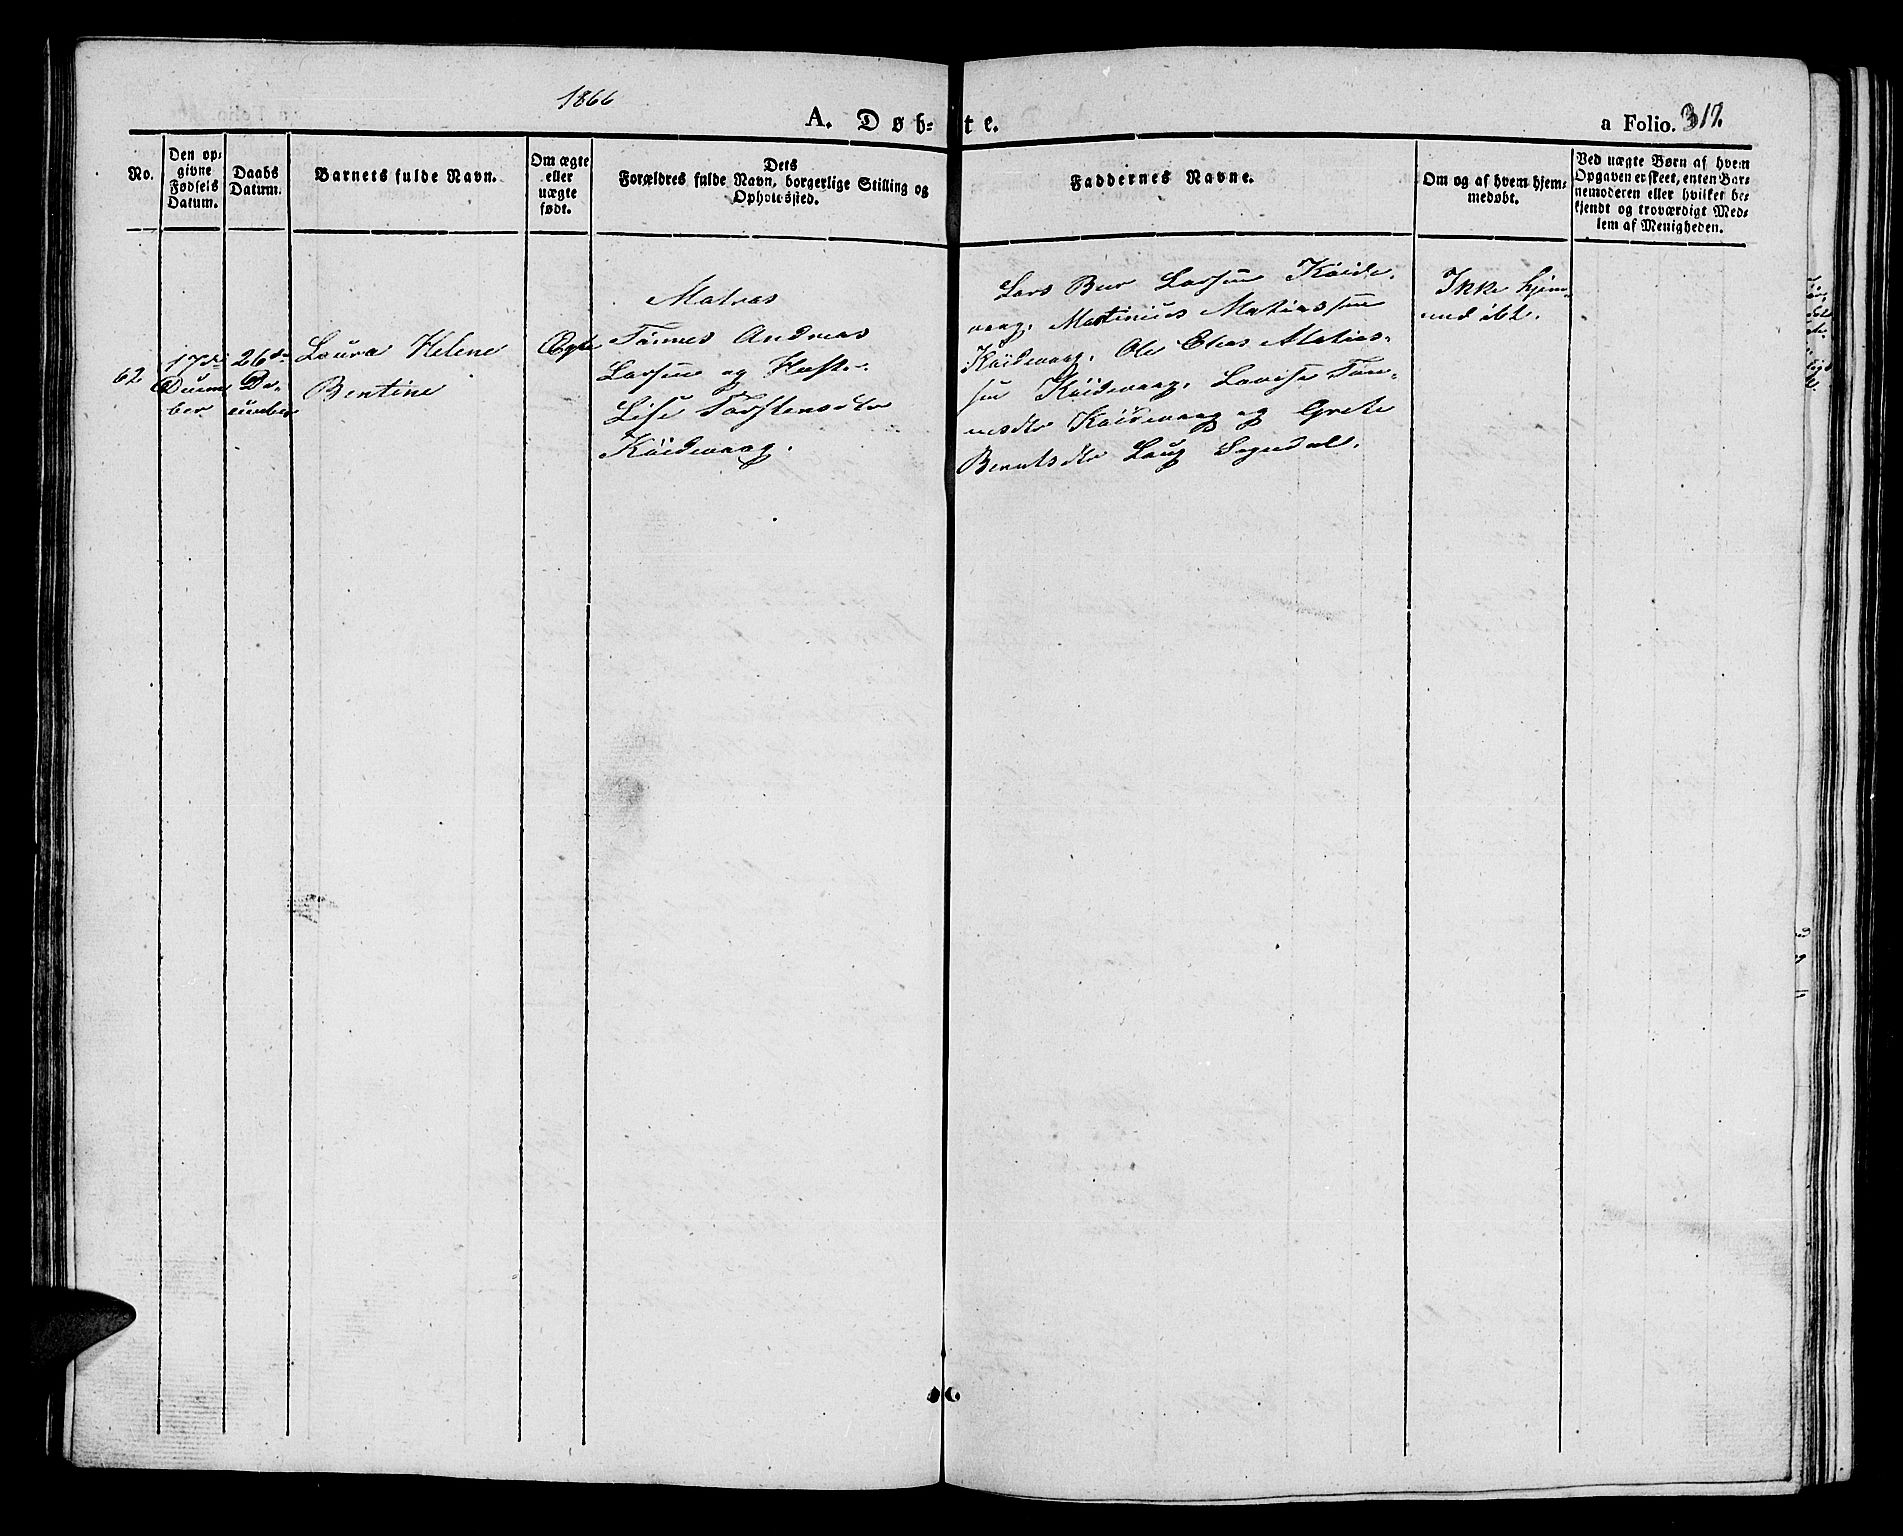 1866
A. Døb-te.
a Folio. 317.
No.
Den op-
givne
Fødsels
Datum.
Daabs
Datum.
Barnets fulde Navn.
Om ægte
eller
uægte
født.
Dets
Forældres fulde Navn, borgerlige Stilling og
Opholdssted.
Faddernes Navne.
Om og af hvem hjem-
medøbt.
Ved uægte Børn af hvem
Opgaven er skeet, enten Bar-
nemoderen eller hvilket be-
kjendt og troværdigt Med-
lem af Menigheden.
62
17de
Decem
ber
26de
De-
cember
Laura Helene
Bentine
Ægte
Matros
Tønnes Andreas
Larsen og
Lise Torstensdtr
Köidevaag.
Lars Larsen Köide-
vaag, Martinius Matiassen
Köidevaag, Ole Elias Matias-
sen Köidevaag, Lovise Tøn-
nesdtr Köidevaag og Grete
Berntsdtr Sogndal.
Ikke hjem-
medöbt.